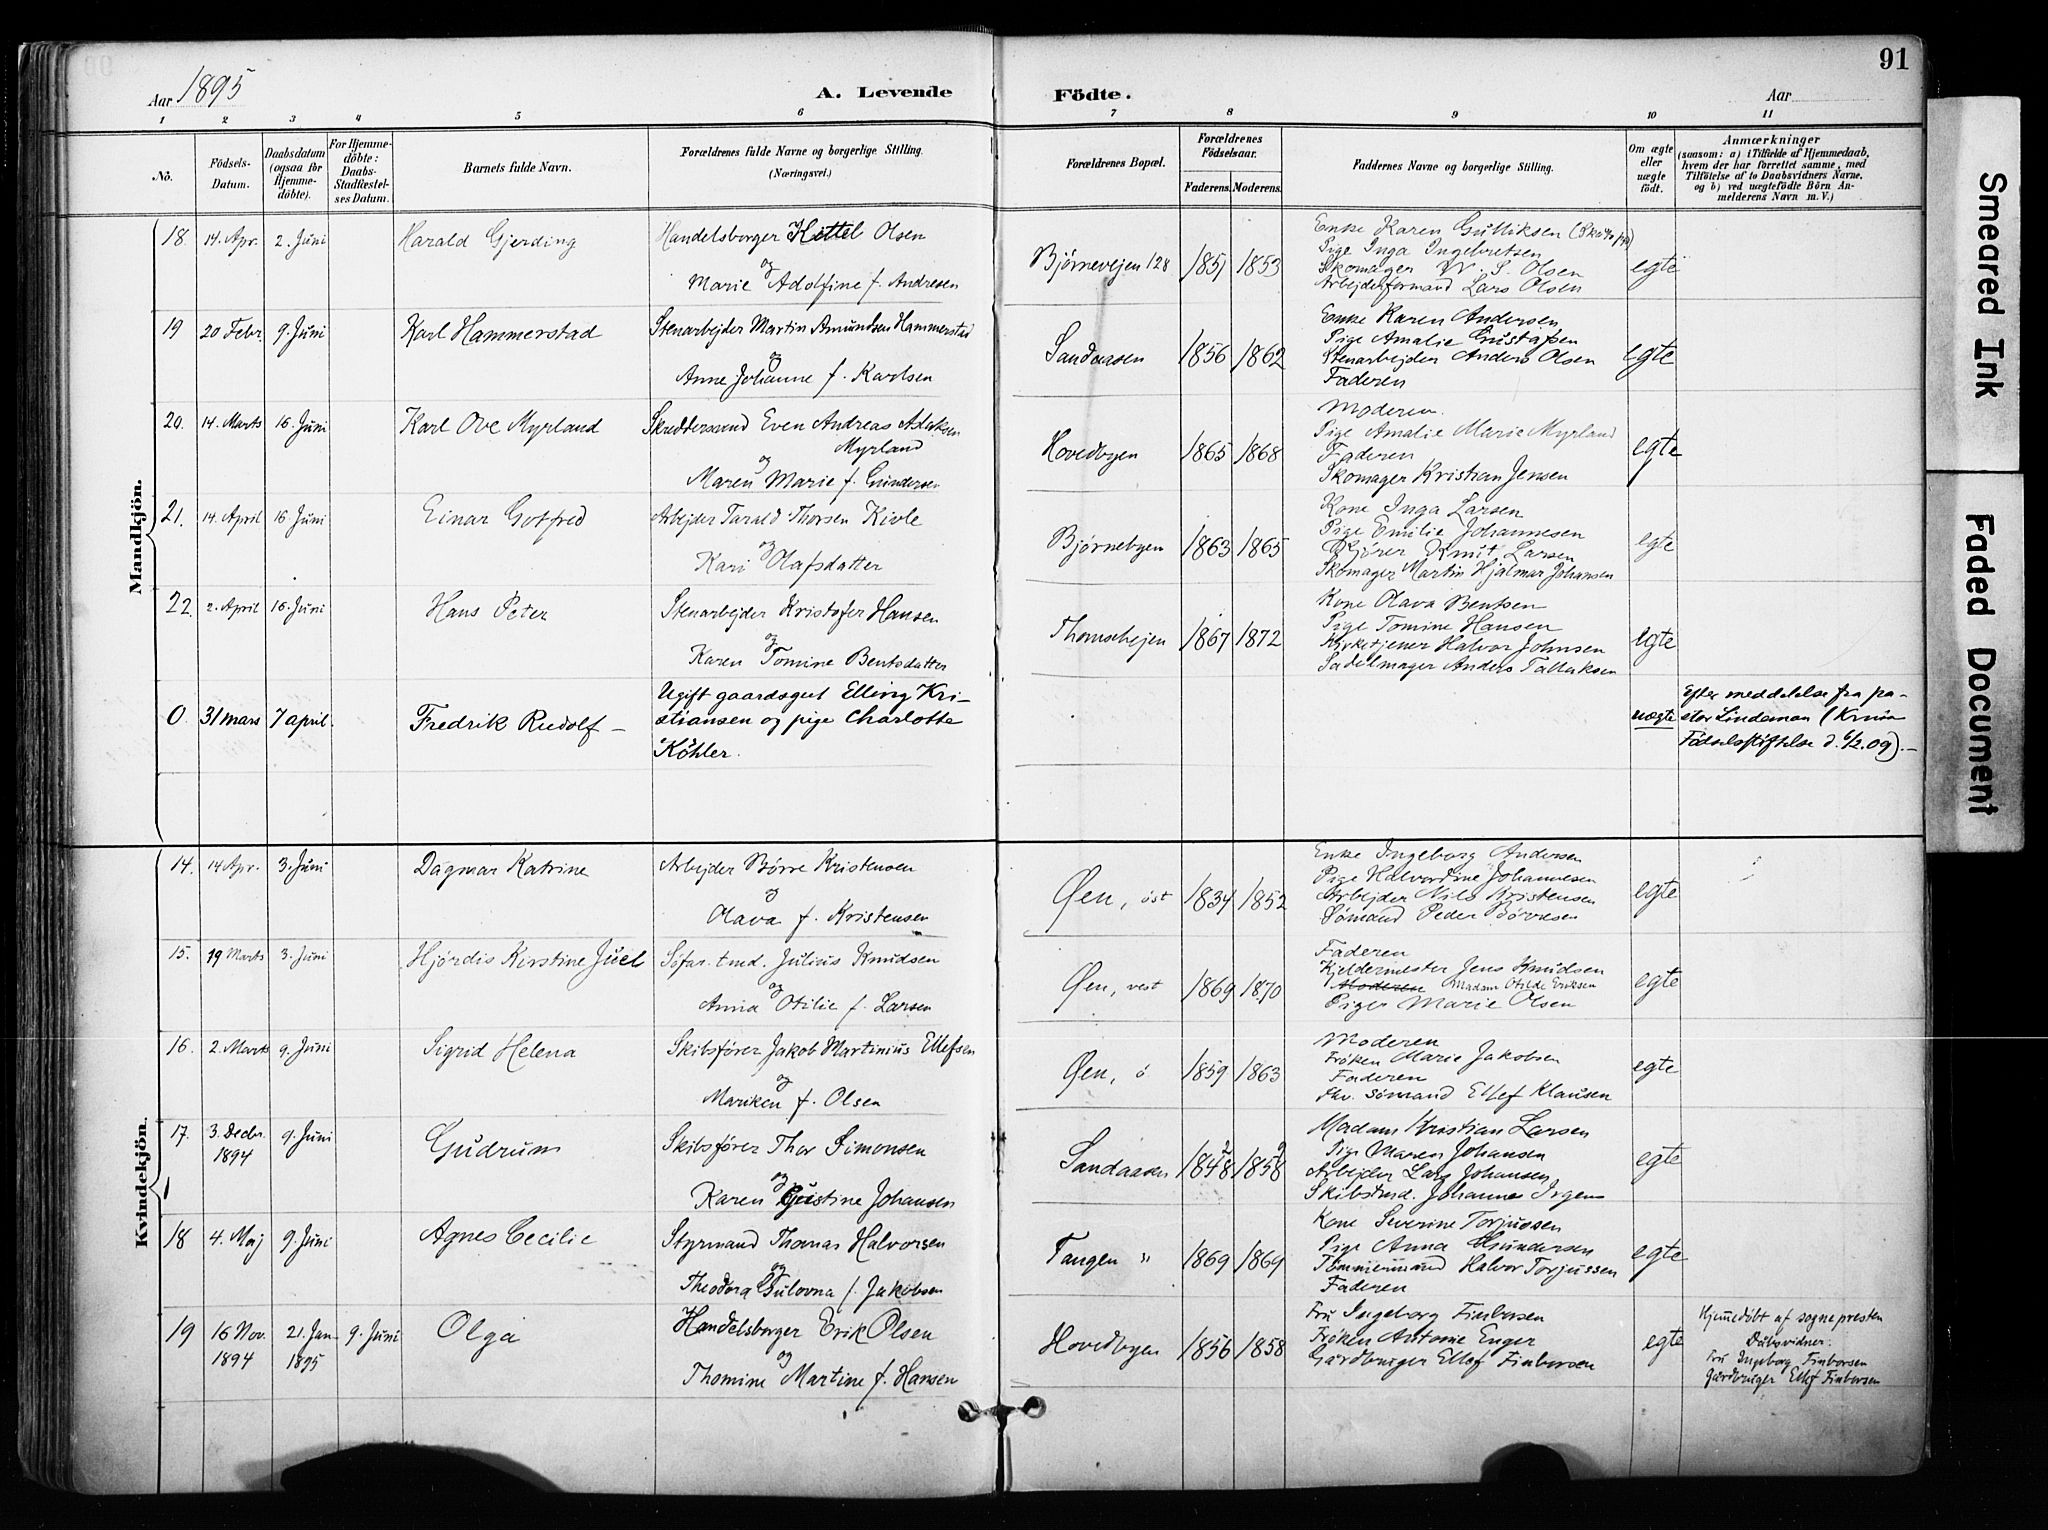 91
Aar 1895
A. Levende Födte.
Aar
1 2 3 4 5 6 7 8 9 10 11
No.
Födsels-
Datum.
Daabsdatum
(ogsaa for
Hjemme-
döbte).
For Hjemme-
döbte:
Daabs-
Stadfæstel-
ses Datum.
Barnets fulde Navn.
Forældrenes fulde Navne og borgerlige Stilling.
(Næringsvei.)
Forældrenes Bopæl.
Forældrenes
Födselsaar.
Faderens. Moderens.
Faddernes Navne og borgerlige Stilling.
Om ægte
eller
uægte
født.
Anmærkninger
(saasom: a) i Tilfælde af Hjemmedaab,
hvem der har forrettet samme, med
Tilföielse af to Daabsvidners Navne,
og b) ved uægtefödte Börn An-
melderens Navn m. V.)
Mandkjön.
18. 14. Apr. 2. Juni Harald Gjerding
Handelsborger Kittel Olsen
og
Marie Adolfine f. Andresen
Bjørnevejen 128 1851 1853
Enke Karen Gulliksen
Pige Inga Ingebretsen
Skomager W. S. Olsen
Arbejdsformand Lars Olsen
egte
19 20 Febr. 9. Juni Karl Hammerstad
Stenarbejder Martin Amundsen Hammerstad
og
Anne Johanne f. Karlsen
Sandaasen 1856 1862
Enke Karen Andersen
Pige Amalie Gustafsen
Stenarbejder Anders Olsen
Faderen
egte
20. 14. Marts 16. Juni Karl Ove Myrland
Skræddersvend Even Andreas Adaksen
Myrland
og
Maren Marie f. Gundersen
Hovedbyen 1865 1868
Moderen.
Pige Amalie Marie Myrland
Faderen
Skomager Kristian Jensen
egte
21. 14. April 16 Juni Einar Gotfred
Arbejder Tarald Thorsen Kivle
og
Kari Olafsdatter
Bjørnebyen 1863 1865
Kone Inga Larsen
Pige Emilie Johannesen
Kjører Knut Larsen
Skomager Martin Hjalmar Johansen
egte
22. 2. April 16. Juni Hans Peter
Stenarbejder Kristofer Hansen
og
Karen Tomine Bentsdatter
1867 1872
Kone Olava Bentsen
Pige Tomine Hansen
Kirketjener Halvor Johnsen
Sadelmager Anders Tallaksen
egte
0. 31 mars 7 april. Fredrik Rudolf –
Ugift gaardsgut Elling Kri-
stiansen og pige Charlotte
Köhler.
uægte
Efter meddelelse fra pa-
stor Lindeman (Krnia
Fødselsstiftelse d. 6/2.09). –
Kvindekjön.
14. 14 Apr. 3. Juni Dagmar Katrine
Arbejder Børre Kristensen
og
Olava f. Kristensen
Øen, öst 1834 1852
Enke Ingeborg Andersen
Pige Halvordine Johannesen
Arbejder Nils Kristensen
Sømand Peder Börresen
egte
15. 19 Marts 3. Juni Hjørdis Kirstine Juel
Söfar. tmd. Julius Knudsen
og
Anna Otilie f. Larsen
Øen, vest 1869 1870
Faderen
Kjeldermester Jens Knudsen
Moderen Madam Otilde Eriksen
Piger Marie Olsen
egte
16. 2. Marts 9. Juni Sigrid Helena
Skibsfører Jakob Martinius Ellefsen
og
Mariken f. Olsen
Øen, ö 1859 1863
Moderen
Frøken Marie Jakobsen
Faderen
fhv. sömand Ellef Klausen
egte
17. 3. Decbr. 1894 9. Juni Gudrun
Skibsfører Thor Simonsen
og
Karen Gustine Johansen
Sandaasen 1848 1858
Madam Kristian Larsen
Pige Maren Johansen
Arbejder Lars Johansen
Skibstmd. Johannes Irgens
egte
18 4. Maj 9. Juni Agnes Cecilie
Styrmand Thomas Halvorsen
og
Theodora Gulovna f. Jakobsen
Tangen " 1869 1869
Kone Severine Torjussen
Pige Anna Gundersen
Tømmermand Halvor Torjussen
Faderen
egte
19 16 Nov. 1894 21. Jan 1895 9. Juni Olga
Handelsborger Erik Olsen
og
Thomine Martine f. Hansen
Hovedbyen 1856 1858
Fru Ingeborg Finborsen
Frøken Antonie Enger
Gårdbruger Ellef Finborsen
egte
Hjemmedöbt af sognepresten
Dåbsvidner.
Fru Ingeborg Finborsen
Gårdbruger Ellef Finborsen
Smeared Ink
Faded Document